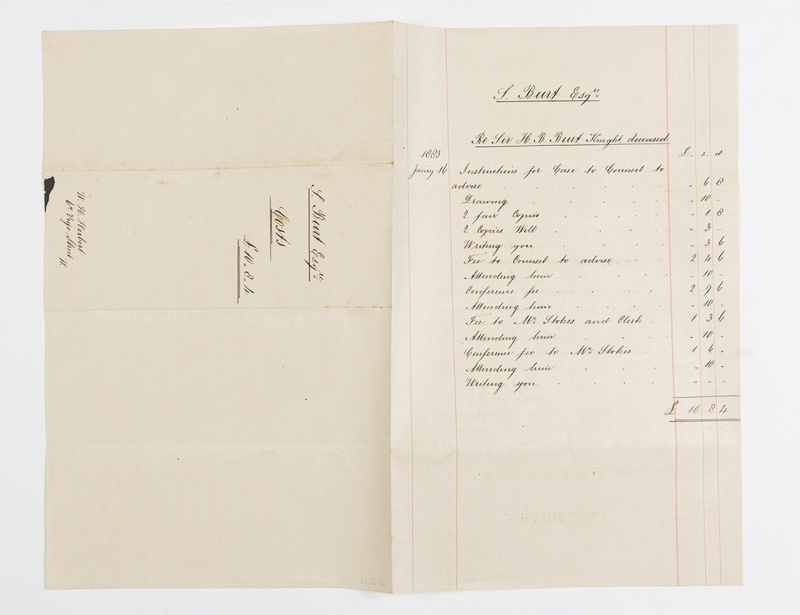 S. Burt Esqre
Costs
£10.8.4
W. H. Herbert
S. Burt Esqre
Re Sir H. B. Burt Knight, deceased
£. s. d
1883
Janry 16 Instructions for Case to Counsel to
advise . . . . . " 6 8
Drawing . . . . . " 10 "
2 fair Copies . . . . . " 1 8
2 Copies Will . . . . . " 3 "
Writing you . . . . . " 3 6
Fee to Counsel to advise . . . 2 4 6
Attending him . . . . " 10 "
Conference fee . . . . . 2 9 6
Attending him . . . . " 10 "
Fee to Mr Stokes and Clerk . 1 3 6
Attending him . . . . " 10 "
Conference fee to Mr Stokes . . 1 6 "
Attending him . . . . " 10 "
Writing you . . . . . " " "
£ 10 8 4